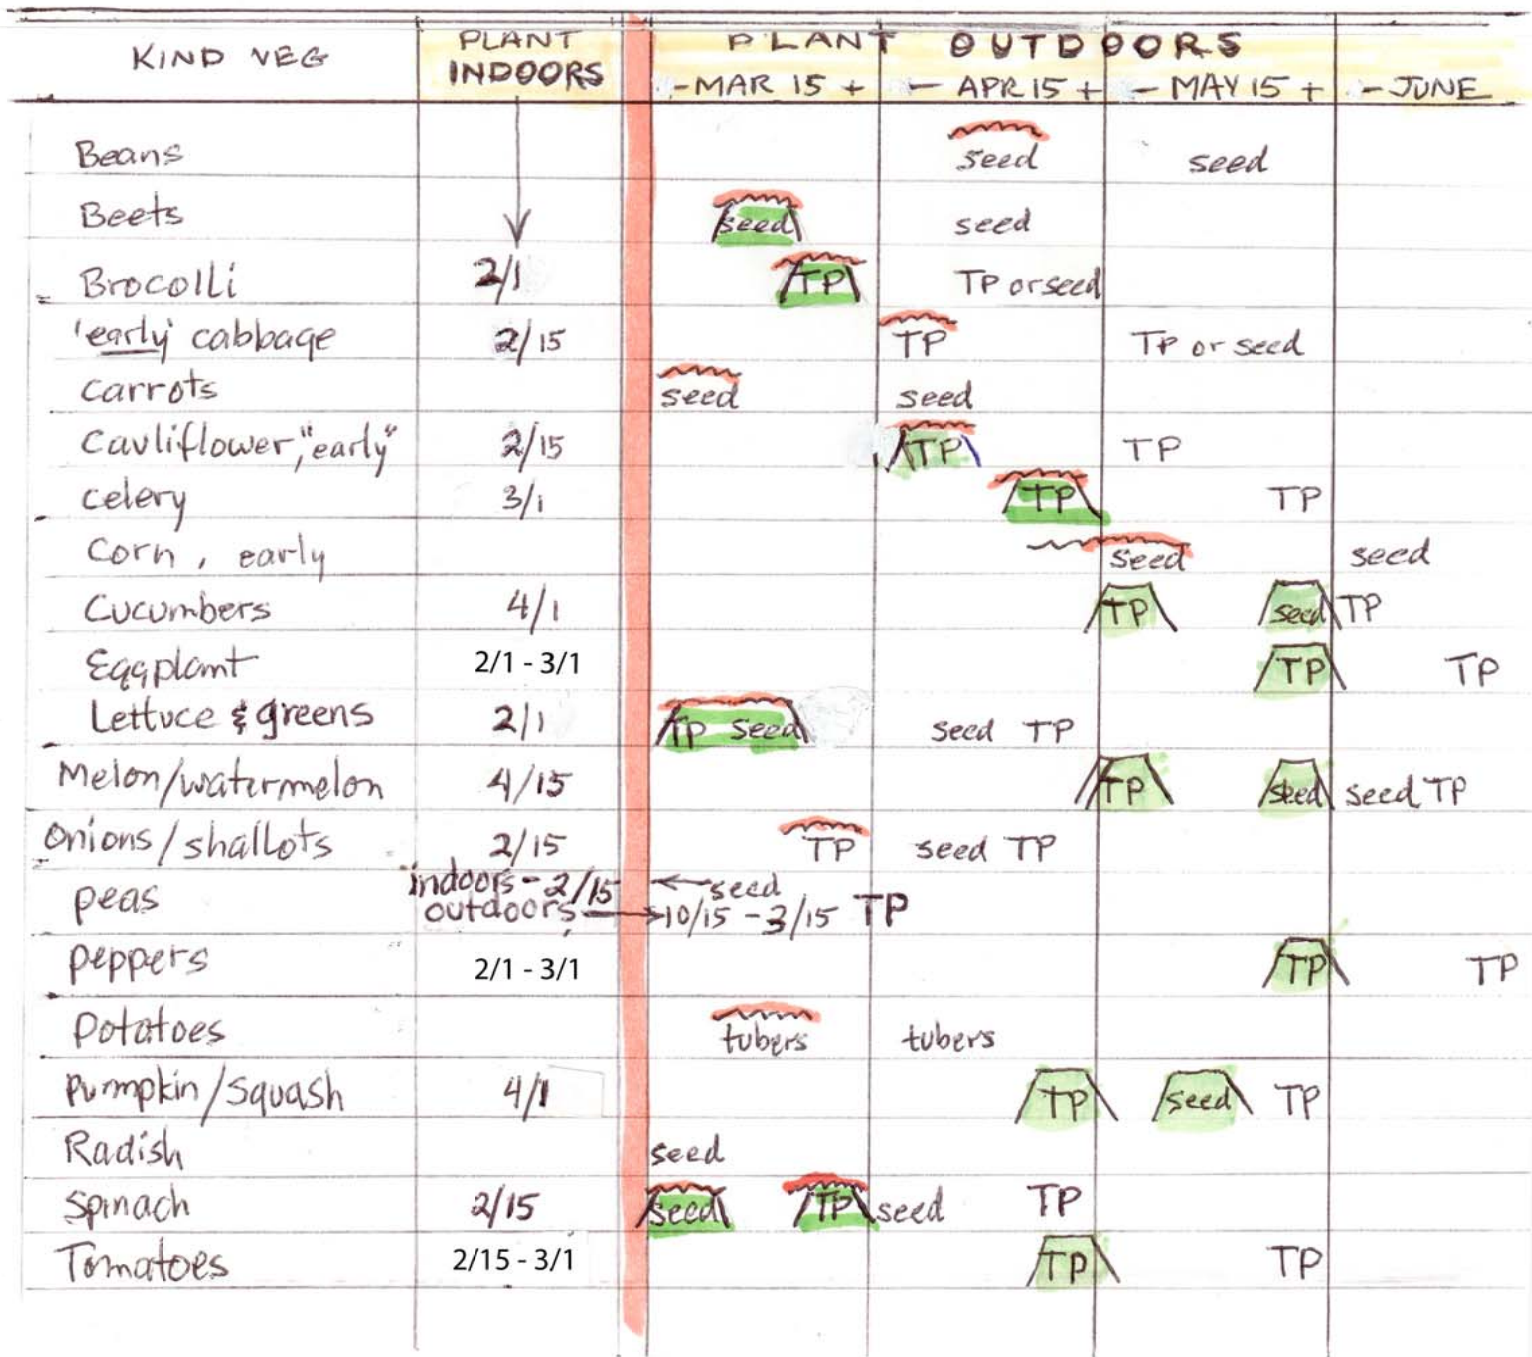 KIND VEG PLANT INDOORS PLANT OUTDOORS
- MAR 15 + - APR 15 + - MAY 15 + - JUNE
Beans seed seed
Beets seed seed
Brocolli 2/1 TP TP or seed
'early' cabbage 2/15 TP TP or seed
carrots seed seed
Cauliflower, "early" 2/15 TP TP
celery 3/1 TP TP
Corn, early seed seed
Cucumbers 4/1 TP seed TP
Eggplant 2/1 - 3/1 TP TP
Lettuce & greens 2/1 TP seed seed TP
Melon/watermelon 4/15 TP seed seed TP
Onions/shallots 2/15 TP seed TP
peas indoors - 2/15 seed
outdoors 10/15 - 3/15 TP
peppers 2/1 - 3/1 TP TP
Potatoes tubers tubers
Pumpkin/Squash 4/1 TP seed TP
Radish seed
Spinach 2/15 seed TP seed TP
Tomatoes 2/15 - 3/1 TP TP